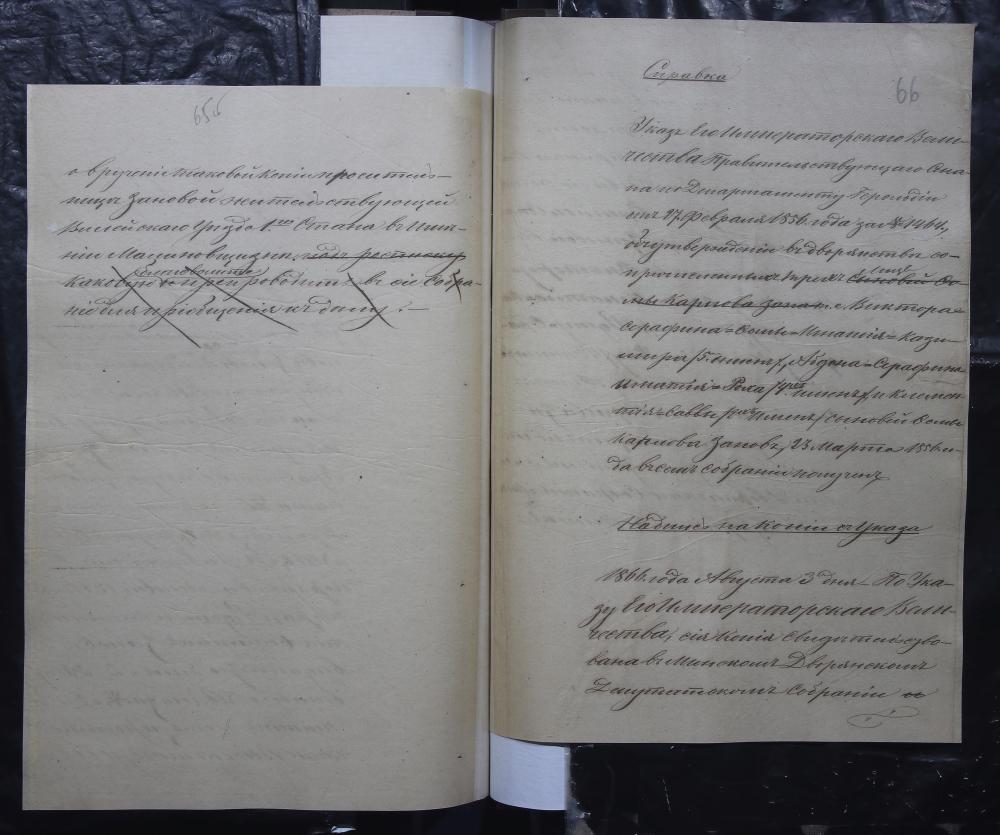 65об
о вручении таковой копіи просител-
ницѣ Зановой жительствующей
Вилейскаго Уѣзда 1го Стана в Имѣ-
ніи подъ росписку
каковую и препроводить в сіе Собра-
ніе для пріобщенія къ дѣлу.—
66
Справка
Указъ Его Императорскаго Вели-
чества Правительствующаго Сена-
та по Департаменту Герольдіи
отъ 27 Февраля 1856 года за № 1464,
объ утвержденіи в дворянствѣ со-
причисленныхъ сыновей Ѳо-
мы Карлова Виктора-
Серафина-Ѳомы-Игнатія-Кази-
мира /5 именъ/, Абдона-Серафина
Игнатія-Роха /4хъ именъ/ и Клемен-
тія-Саввы /2хъ Именъ/ сыновей Ѳомы
Карлова Зановъ, 23 Марта 1856 го-
да в семъ Собраніи полученъ
Надпись на Копіи съ Указа
1866 года Августа 3 дня По Ука-
зу Его Императорскаго Вели-
чества, сія Копія Свидѣтельство-
вана в Минскомъ Дворянскомъ
Депутатскомъ Собраніи